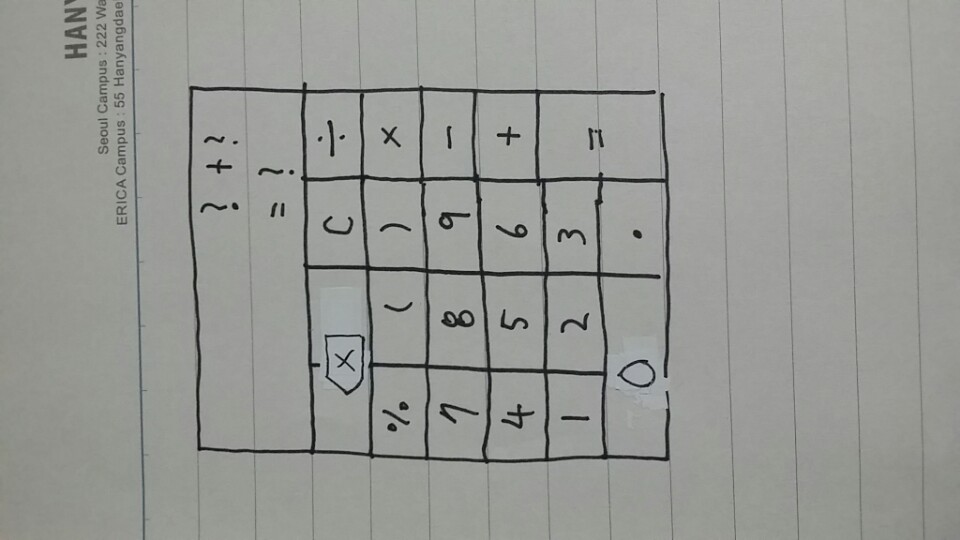 HANY
Seoul Campus : 222 Wa
ERICA Campus : 55 Hanyangdae
? + ?
= ?
X C ÷
% ( ) ×
7 8 9 −
4 5 6 +
1 2 3 =
0 .